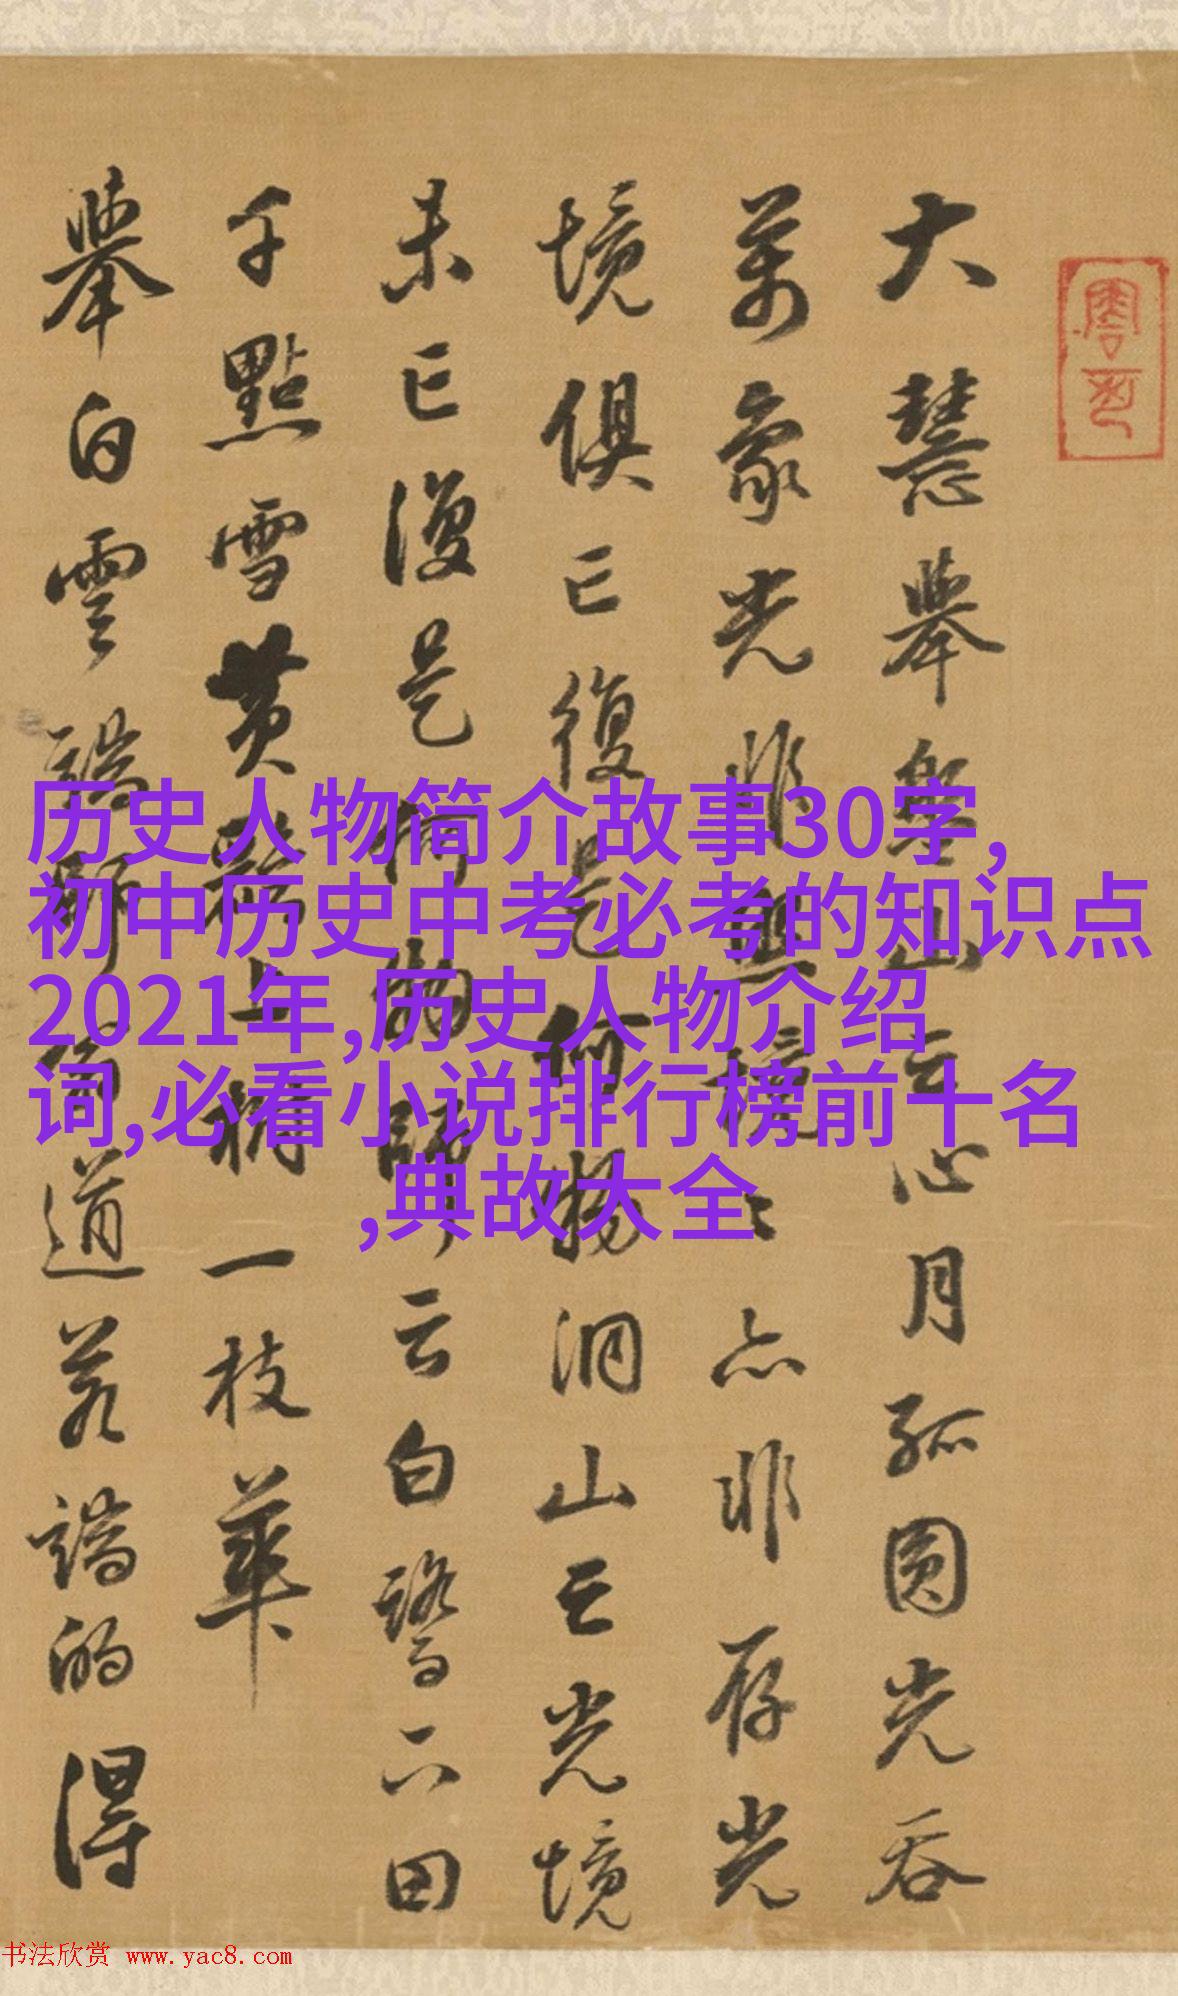 大慧舉盤山云心月孤圓光吞
萬象光非照境境亦非存光
境俱亡復是何物洞山云光境
未亡復是何物師云白鷺下田
千點雪黃鸝上樹一枝華
舉白雲端師翁道若端的得
历史人物简介故事30字,
初中历史中考必考的知识点
2021年,历史人物介绍
词,必看小说排行榜前十名
,典故大全
书法欣赏 www.yac8.com